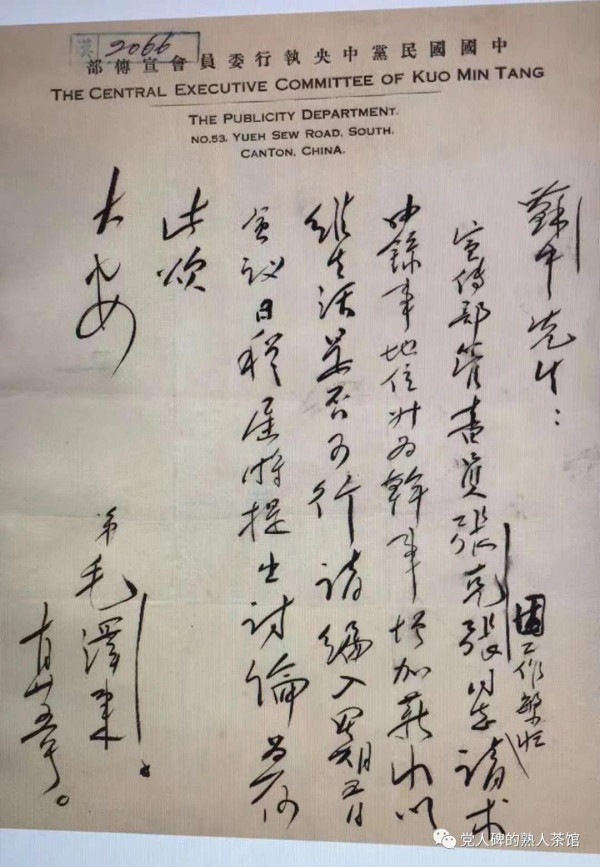 漢 2066
中國國民黨中央執行委員會宣傳部
THE CENTRAL EXECUTIVE COMMITTEE OF KUO MIN TANG
THE PUBLICITY DEPARTMENT.
NO.53, YUEH SEW ROAD, SOUTH.
CANTON, CHINA.
先生：
宣傳部管書員張克張同志因工作繁忙請求
由錄事地位升為幹事增加薪水以
維生活是否可行請編入五日
會議日程屆時提出討論為荷
此頌
大安
弟毛澤東。
党人碑的熟人茶馆